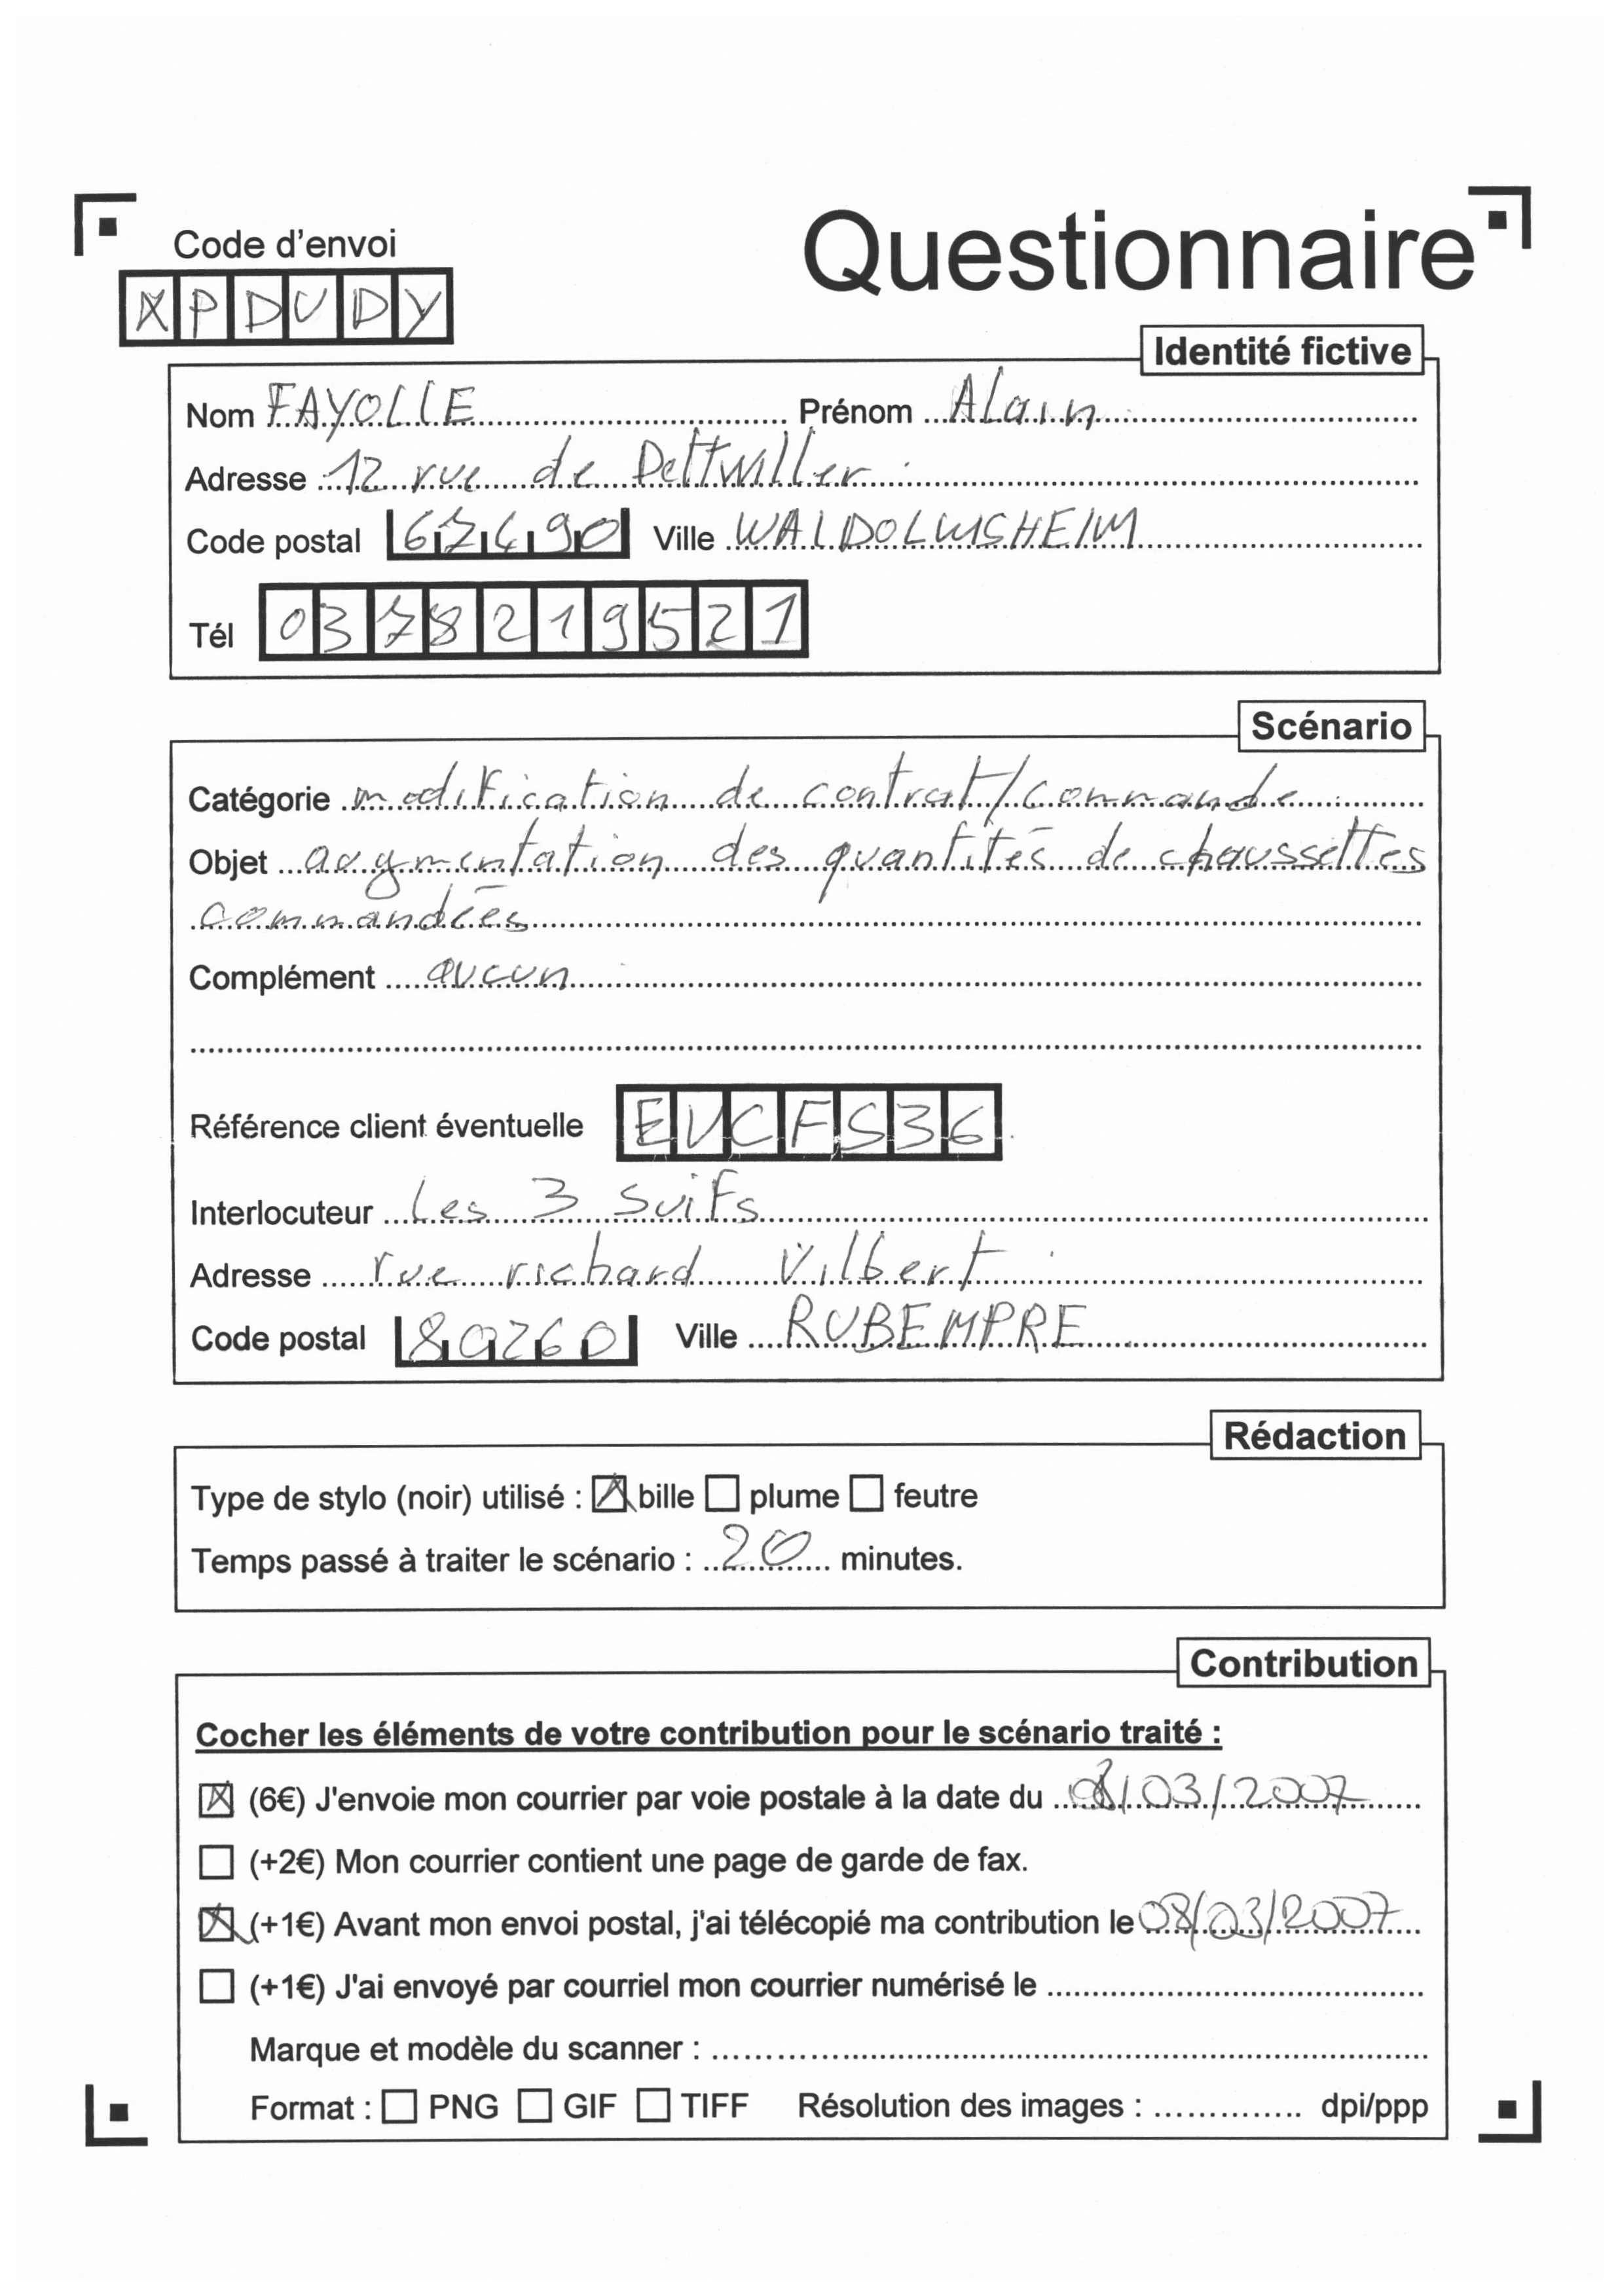 Questionnaire
Code d'envoi
XPDUDY
Identité fictive
Nom FAYOLLE Prénom Alain
Adresse 12 rue de Dettwiller
Code postal 67490 Ville WALDOLWISHEIM
Tél 0378219521
Scénario
Catégorie modification de contrat/commande
Objet augmentation des quantités de chaussettes
commandées
Complément aucun
Référence client éventuelle EUCFS36
Interlocuteur Les 3 Suifs
Adresse rue richard Vilbert
Code postal 80260 Ville RUBEMPRE
Rédaction
Type de stylo (noir) utilisé : ☒ bille ☐ plume ☐ feutre
Temps passé à traiter le scénario : 20 minutes.
Contribution
Cocher les éléments de votre contribution pour le scénario traité :
☒ (6€) J'envoie mon courrier par voie postale à la date du /03/2007
☐ (+2€) Mon courrier contient une page de garde de fax.
☒ (+1€) Avant mon envoi postal, j'ai télécopié ma contribution le 08/03/2007
☐ (+1€) J'ai envoyé par courriel mon courrier numérisé le
Marque et modèle du scanner :
Format : ☐ PNG ☐ GIF ☐ TIFF Résolution des images : dpi/ppp